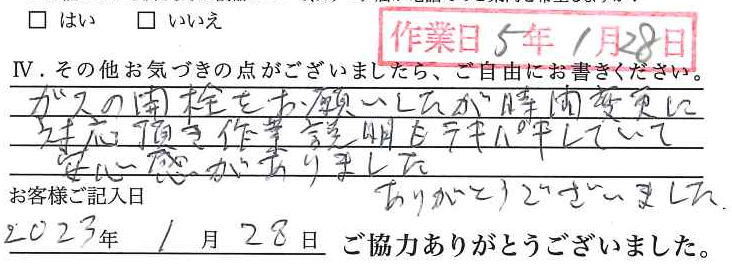 □ はい □ いいえ
作業日 5年 1月28日
Ⅳ．その他お気づきの点がございましたら、ご自由にお書きください。
ガスの開栓をお願いしたが時間変更に
対応頂き作業説明もテキパキしていて
安心感がありました
ありがとうございました.
お客様ご記入日
2023年 1月28日 ご協力ありがとうございました。